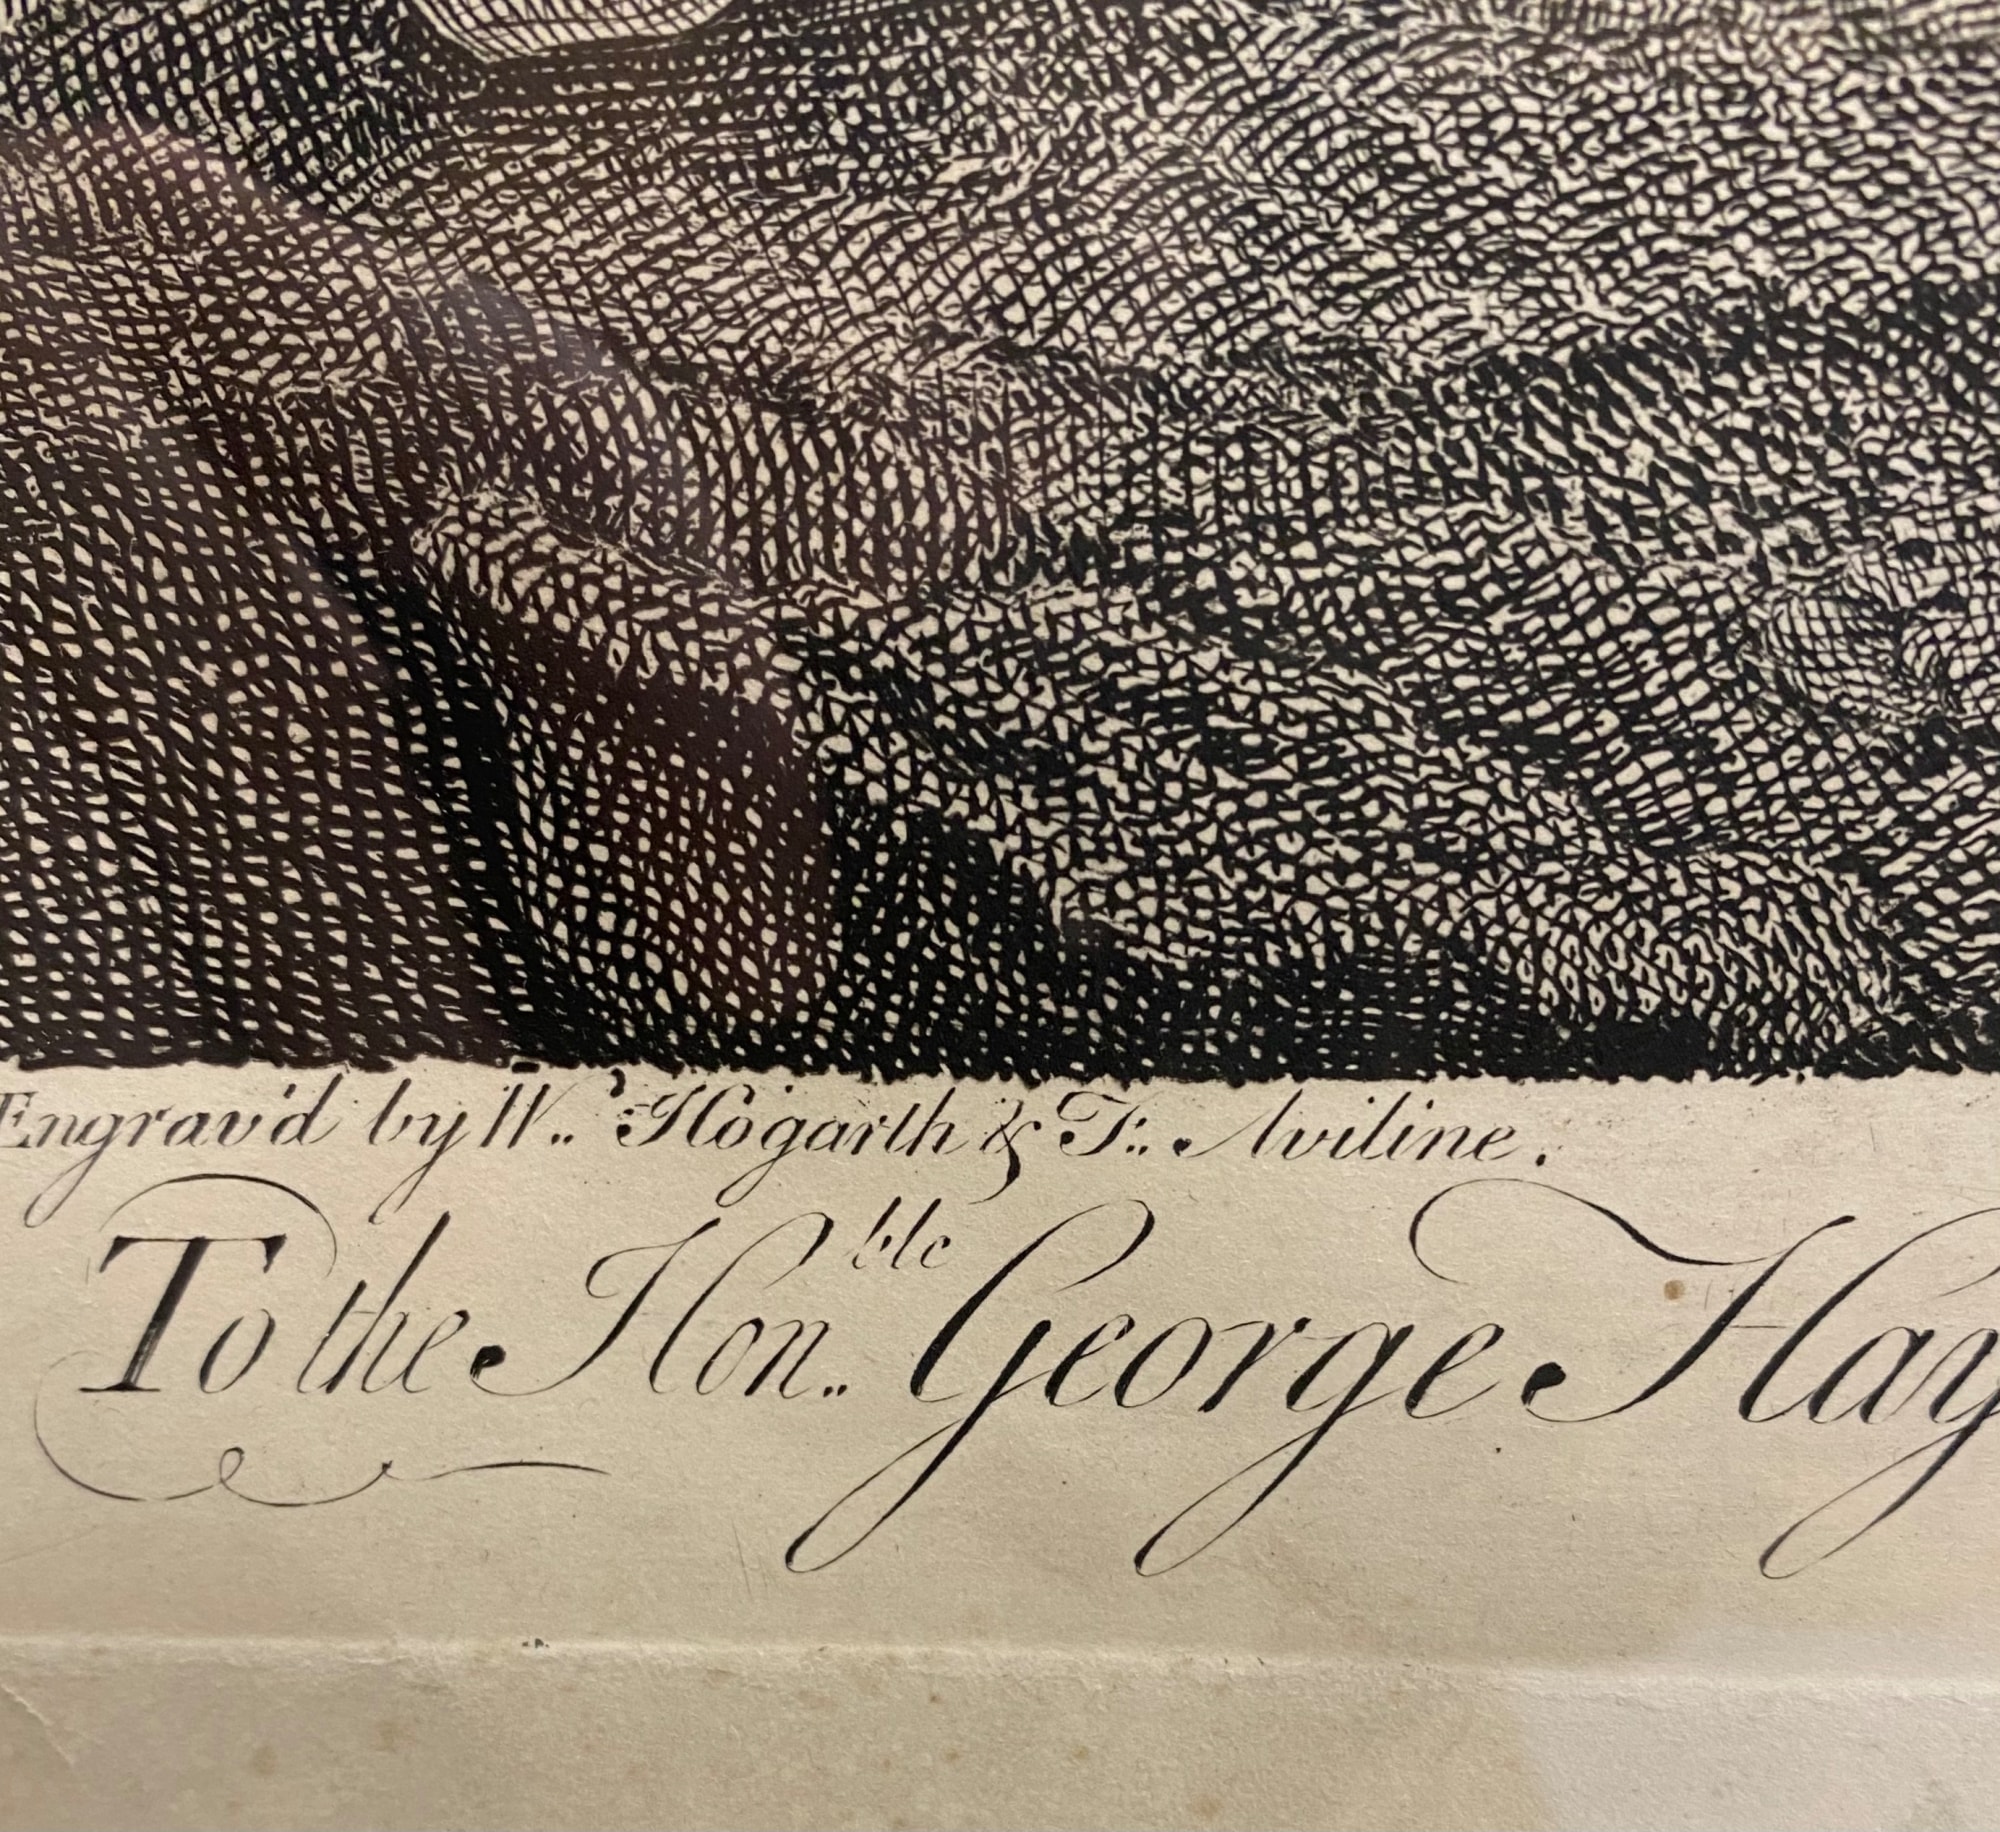 Engrav'd by W.. Hogarth & F.. Aviline.
To the Hon..ble George Hay